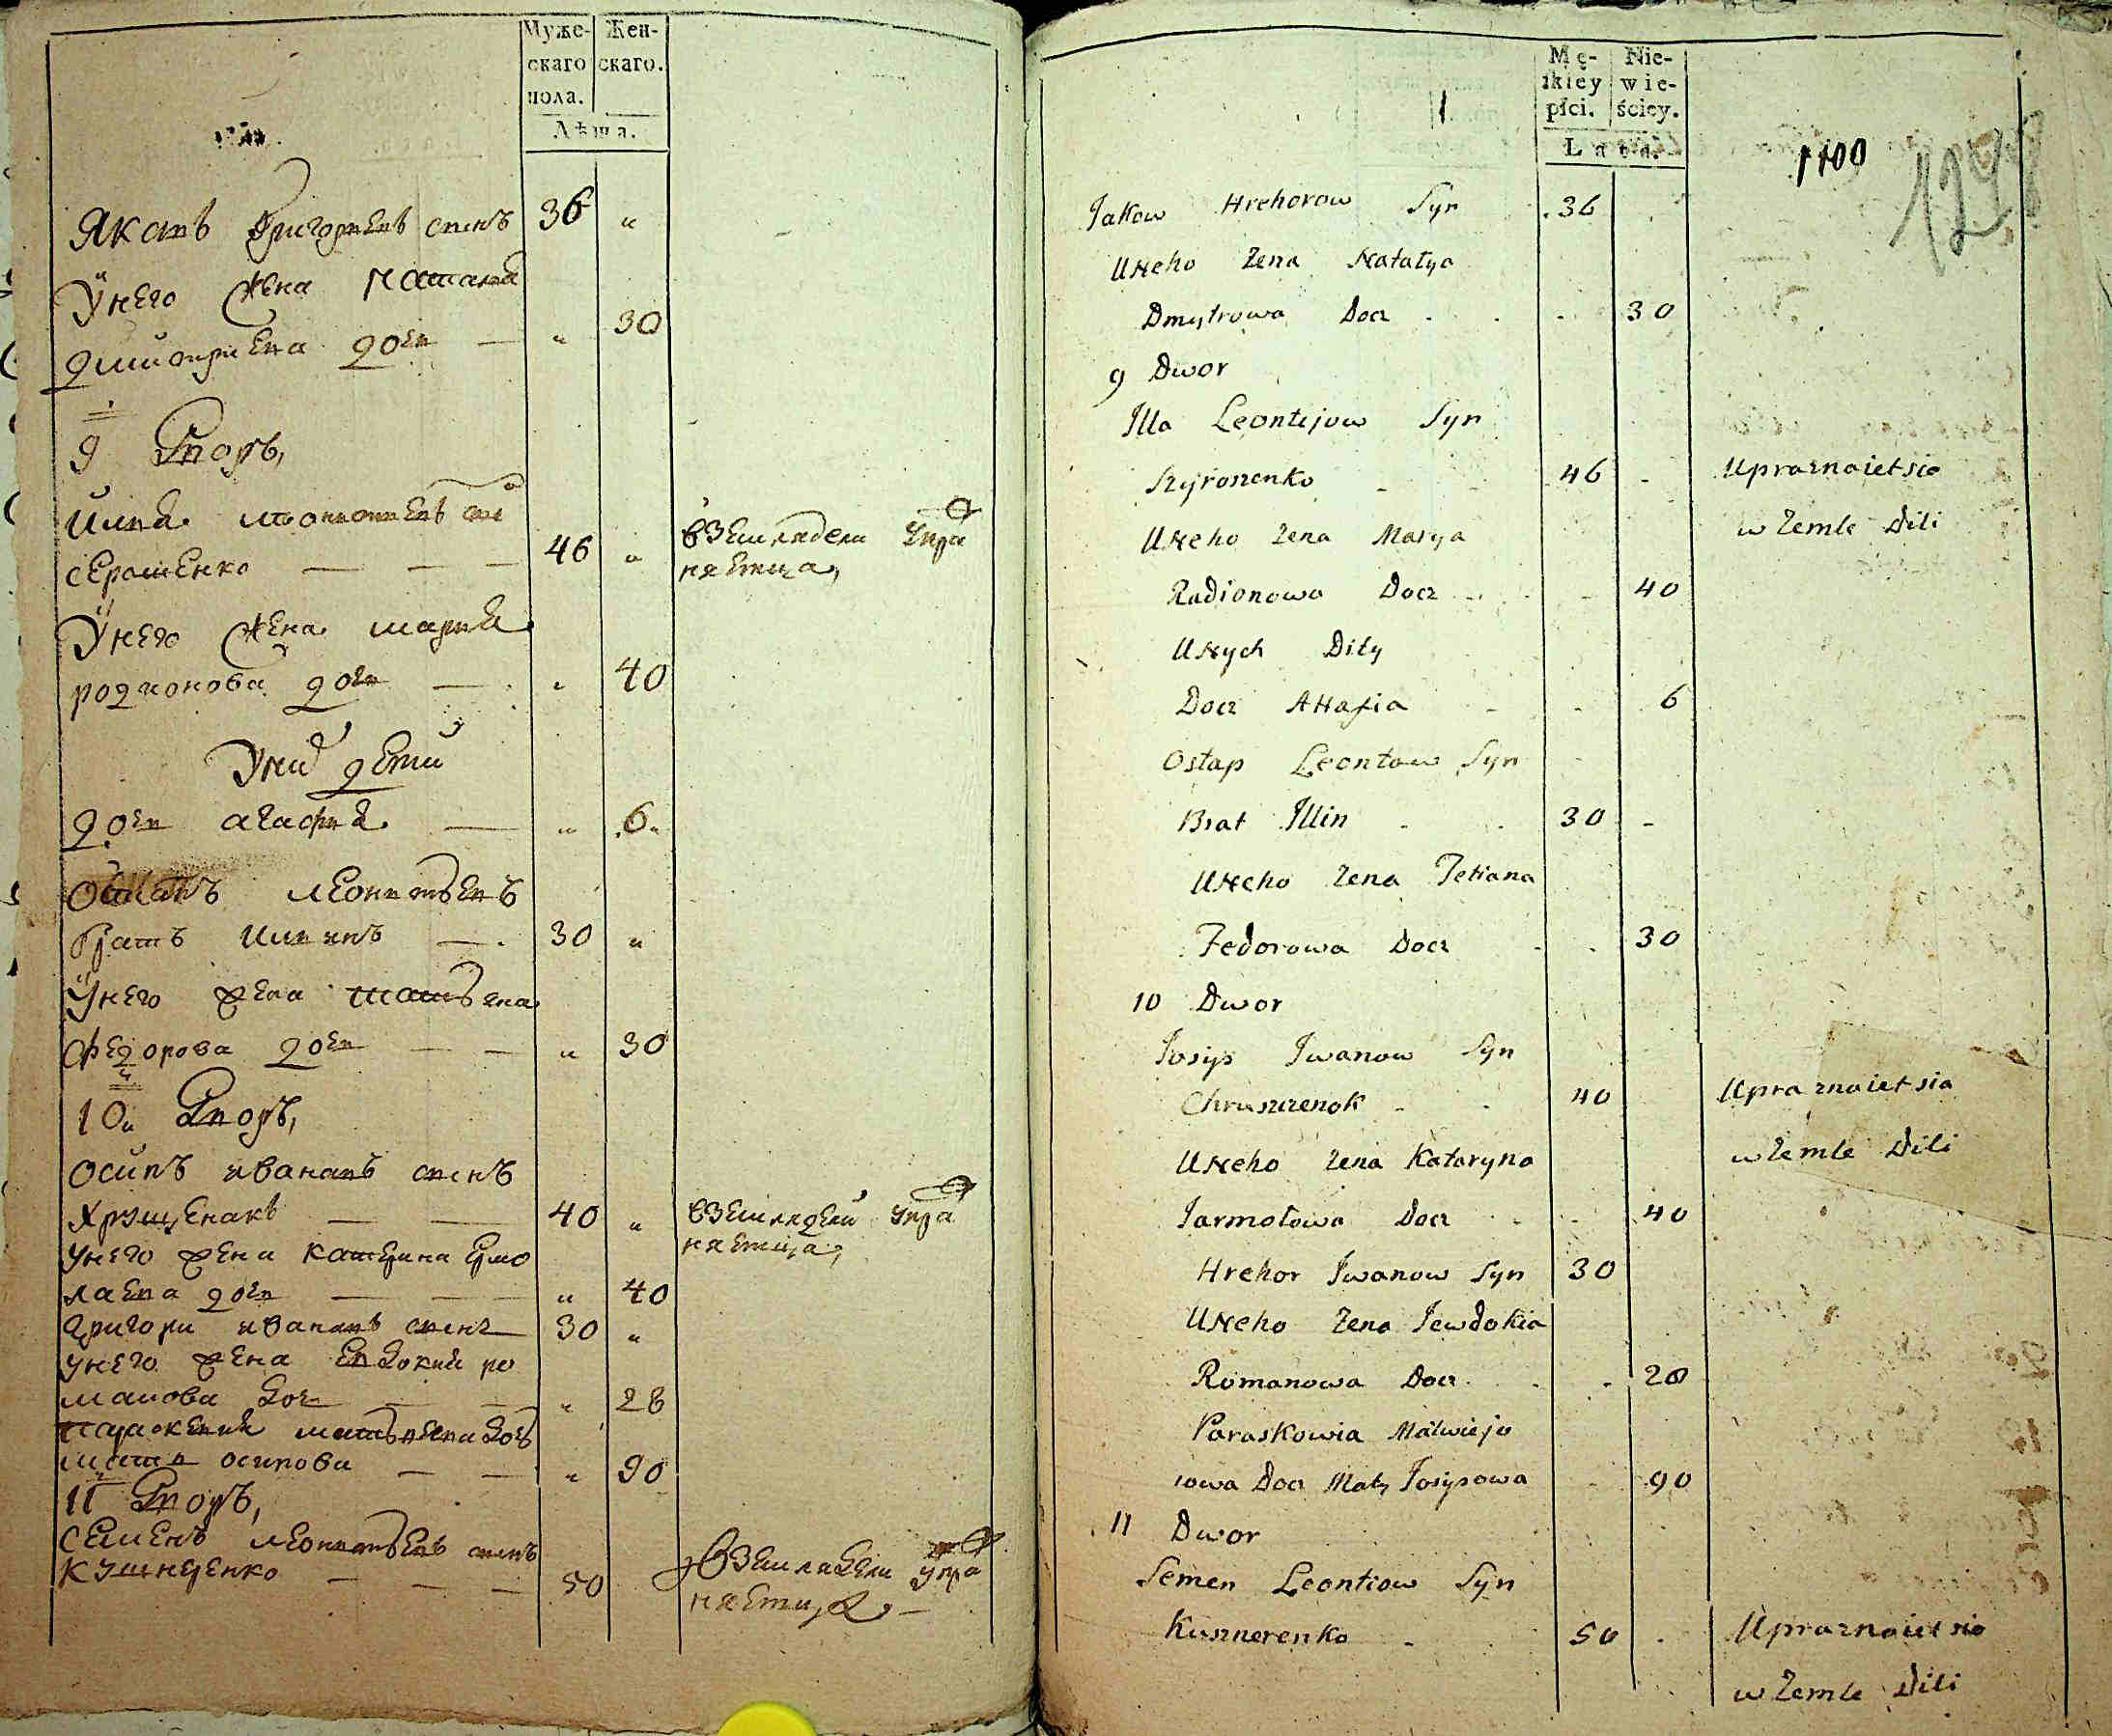 Муже-
скаго
пола.
Жен-
скаго.
Лѣта.
Яковъ Григориевъ синъ 36 "
Унего жена Наталя
дмитриева дочъ — " 30
9 Дворъ,
Илия леонтиевъ си
серошенко — — — 46 " вземледели упра
няетца,
Унего жена мария
родионова дочъ — " 40
Уних дети
дочъ агафия — " 6 "
Остапъ леонтьевъ
братъ илинъ — 30 "
Унего жена татьяна
федорова дочъ — — " 30
10 Дворъ,
осипъ ивановъ синъ
хрущенакъ — — 40 " вземледели упра
няетца,
унего жена катерина ермо
лаева дочъ — — — " 40
григори ивановъ синъ 30 "
унего жена евдокия ро
манова доч — — " 28
параскевия матьвеева дочъ
мати осипова — — " 90
11 Дворъ,
семенъ леонтьевъ синъ
кушнеренко — — — 50 вземледели упра
няетца —
Mę-
zkiey
płci.
Nie-
wie-
ściey.
Lata.
1100
Jakow Hrehorow Syn 36
UNeho Zena Natalya
Dmytrowa Docz 30
9 Dwor
Illa Leontijow Syn
Szyroszenko 46 Upraznaietsia
w Zemle Dili
UNeho Zena Marya
Radionowa Docz 40
UNych Dity
Docz AHafia 6
Ostap Leontow Syn
Brat Illin 30
UNeho Zena Tetiana
Fedorowa Docz 30
10 Dwor
Josyp Jwanow Syn
Chruszczenok 40 Upraznaietsia
w Zemle Dili
UNeho Zena Kataryna
Jarmołowa Docz 40
Hrehor Jwanow Syn 30
UNeho Zena Jewdokia
Romanowa Docz 28
Paraskowia Matwiejo
wowa Docz Maty Josypowa 90
11 Dwor
Semen Leontiow Syn
Kusznerenko 50 Upraznaietsia
w Zemle Dili